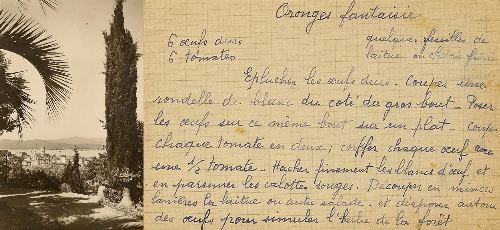 Oronges fantaisie
6 œufs durs
6 tomates
quelques feuilles de
laitue ou chicorée frisée
Eplucher les œufs durs - Couper une
rondelle de blanc du côté du gros bout - Poser
les œufs sur ce même bout sur un plat - Couper
chaque tomate en deux, coiffer chaque œuf avec
une 1/2 tomate - Hacher finement les blancs d'œuf et
en parsemer les calottes rouges. Découper en minces
lanières la laitue ou autre salade et disposer autour
des œufs pour simuler l'herbe de la forêt